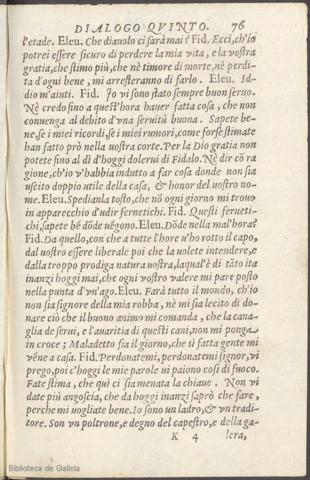 DIALOGO QVINTO. 76
l'etade. Eleu. Che diauolo ci sarà mai? Fid. Ecci, ch'io
potrei essere sicuro di perdere la mia vita, e la vostra
gratia, che stimo più, che nè timore di morte, nè perdi-
ta d'ogni bene, mi arresteranno di farlo. Eleu. Id-
dio m'aiuti. Fid. Io vi sono stato sempre buon seruo.
Nè credo fino a quest'hora hauer fatta cosa, che non
conuenga al debito d'vna seruitù buona. Sapete be-
ne, se i miei ricordi, se i miei rumori, come forse stimate
han fatto prò nella vostra corte. Per la Dio gratia non
potete fino al dì d'hoggi dolerui di Fidalo. Nè dir cō ra
gione, ch'io v'habbia indutto a far cosa donde non sia
uscito doppio utile della casa, & honor del vostro no-
me. Eleu. Spedianla tosto, che nō ogni giorno mi trouo
in apparecchio d'udir fernetichi. Fid. Questi ferneti-
chi, sapete bē dōde uēgono. Eleu. Dōde nella mal'hora?
Fid. Da quello, con che a tutte l'hore u'ho rotto il capo,
dal uostro essere liberale poi che la uolete intendere, e
dalla troppo prodiga natura uostra, laqual'è di tāto ita
inanzi hoggi mai, che ogni vostro valere mi pare posto
nella punta d'vn'ago. Eleu. Farà tutto il mondo, ch'io
non sia signore della mia robba, nè mi sia lecito di do-
nare ciò che il buono animo mi comanda, che la cana-
glia de serui, e l'auaritia di questi cani, non mi ponga
in croce; Maladetto sia il giorno, che sì fatta gente mi
vēne a casa. Fid. Perdonatemi, perdonatemi signor, vi
prego, poi c'hoggi le mie parole ui paiono cosi di fuoco.
Fate stima, che quì ci sia menata la chiaue. Non vi
date più angoscia, che da hoggi inanzi saprò che fare,
perche mi uogliate bene. Io sono un ladro, & vn tradi-
tore. Son vn poltrone, e degno del capestro, e della ga-
K 4 lera,
Biblioteca de Galicia